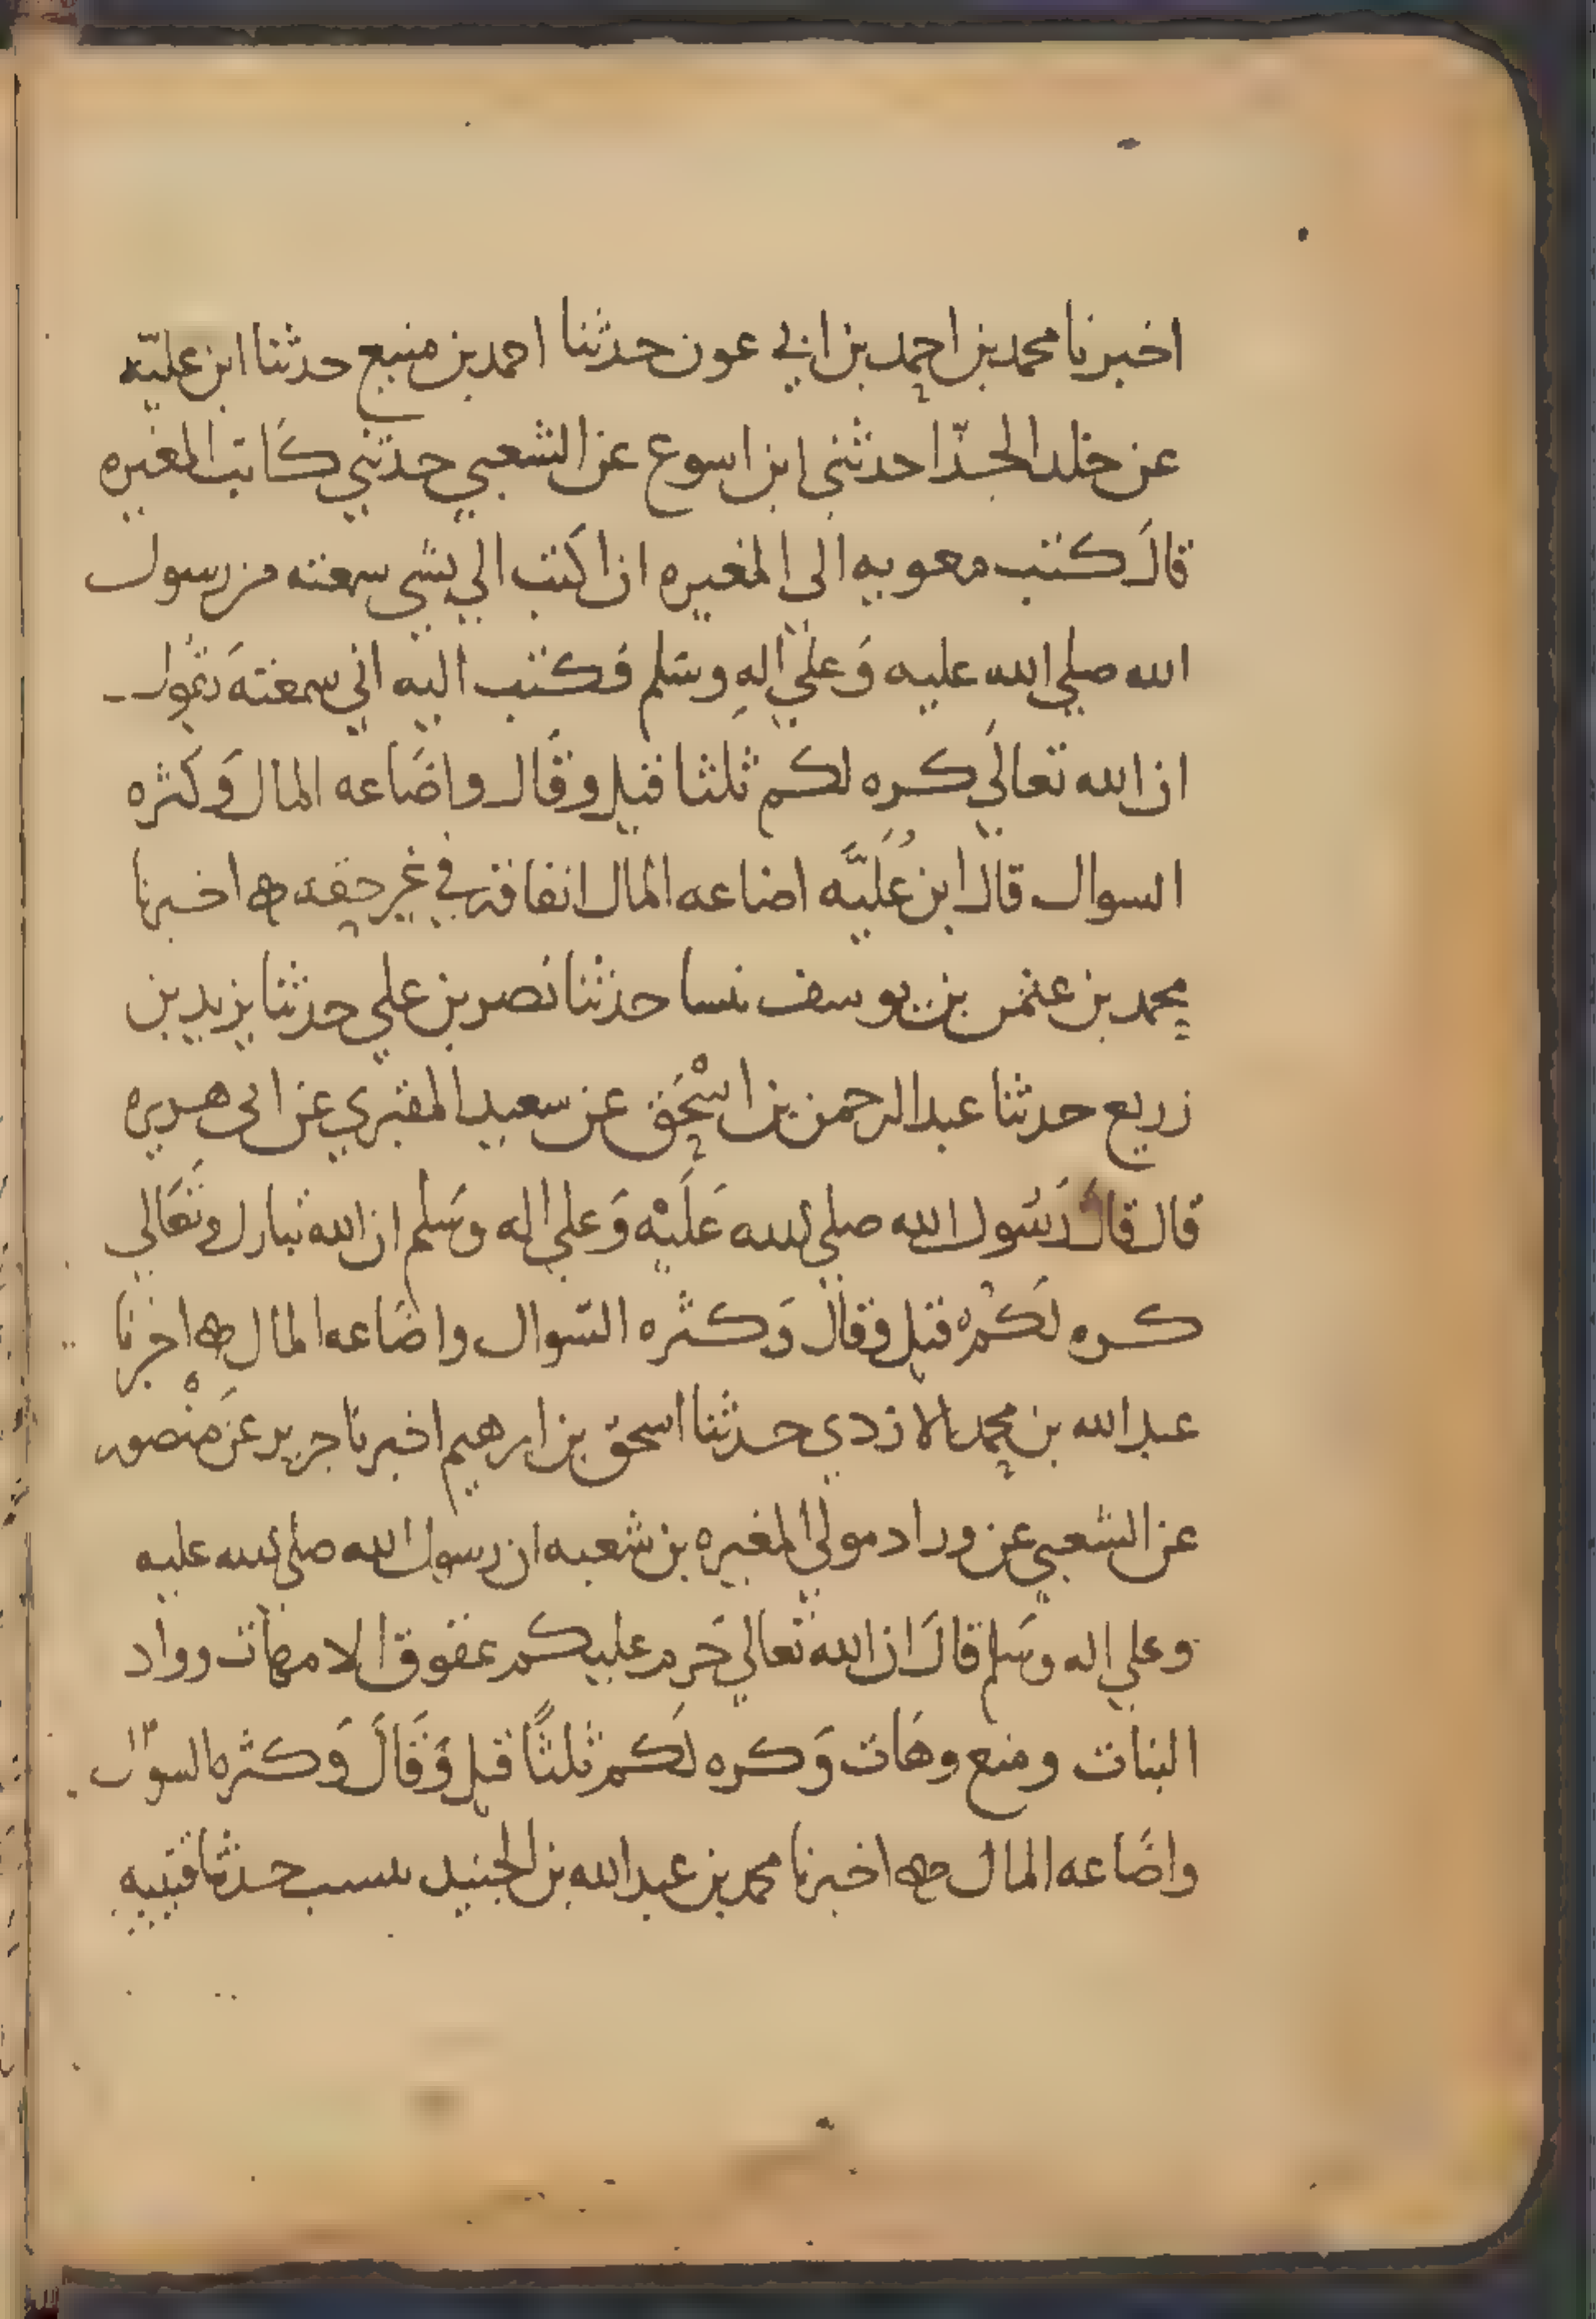 اخبرنا محمد بن احمد بن ابي عون حدثنا احمد بن منيع حدثنا ابن عليّه
عن خلد الحذّا حدثني ابن اسوع عن الشعبي حدثني كَاتب المغيره
قالَ كتب معويه الى المغيره ان اكَتب الي بشي سمعته من رسول
الله صلي الله عليه وَعلي الهِ وسَلم فَكتب اليه اني سمعتهَ يقول
ان الله تعالَي كره لكم ثلثا قيل وقَال واضَاعه المال وَكثره
السوال قال ابن عُلَيَّه اضاعه المال انفاقه في غير حقه ه اخبرنا
محمد بن عثمن بن يوسف بنسا حدثنا نصر بن علي حدثنا يزيد بن
زريع حدثنا عبد الرحمن بن اسْحَق عن سعيد المقبري عن ابى هريره
قال قالَ رَسُول الله صلي الله عَلَيْه وَعلي اله وسَلم ان الله تبارك وتَعَالي
كره لَكمْ قيل وقالَ وَكثره السّوال واضَاعه المال ه اخبرنا
عبد الله بن محمد الازدي حدثنا اسحق بن ابرهيم اخبرنا جرير عَن منْصور
عن الشعبي عن وراد مولي المغيره بن شعبه ان رسول الله صلي الله عليه
وعلي اله وسَلم قالَ ان الله تعالي حَرم عليكم عقوق الامهات وواد
البنات ومنع وهَات وَكره لَكم ثلثًا قيل وَقَالَ وَكثره السوال
واضَاعه المال ه اخبرنا محمد بن عبد الله بن الجنيد ببست حدثنا قتيبه